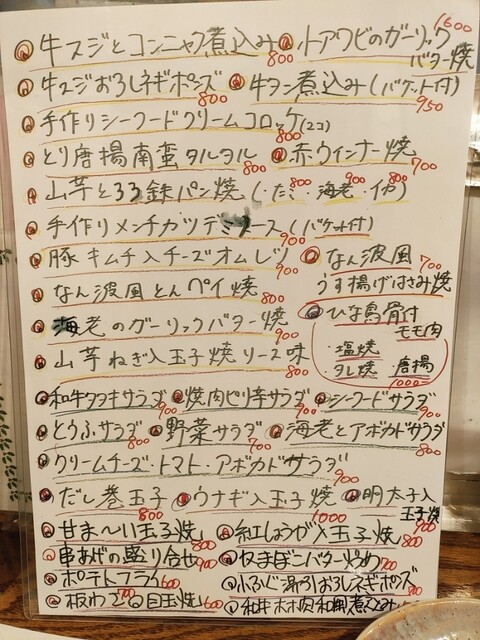 牛スジとコンニャク煮込み 800 小アワビのガーリック 1600
バター焼
牛スジおろしネギポンズ 800 牛タン煮込み(バケット付) 950
手作りシーフードクリームコロッケ(2コ) 800
とり唐揚南蛮タルタル 800 赤ウィンナー焼 700
山芋とろろ鉄パン焼(・たこ 800 ・海老 900 ・イカ 800)
手作りメンチカツデミソース(バケット付) 900
豚キムチ入チーズオムレツ 900 なん波風 700
うす揚げはさみ焼
なん波風とんペイ焼 800 ひな鳥骨付
モモ肉
海老のガーリックバター焼 900 ・塩焼
山芋ねぎ入玉子焼ソース味 800 ・タレ焼 ・唐揚 1000
和牛タタキサラダ 900 焼肉ピリ辛サラダ 900 シーフードサラダ 900
とうふサラダ 800 野菜サラダ 700 海老とアボカドサラダ 800
クリームチーズ・トマト・アボカドサラダ 900
だし巻玉子 800 ウナギ入玉子焼 1000 明太子入
玉子焼 900
甘ま〜い玉子焼 800 紅しょうが入玉子焼 800
串あげの盛り合せ 900 ちまぼこバター炒め 700
ポテトフライ 600 おろしネギポンズ 800
板わさ 600 目玉焼 600